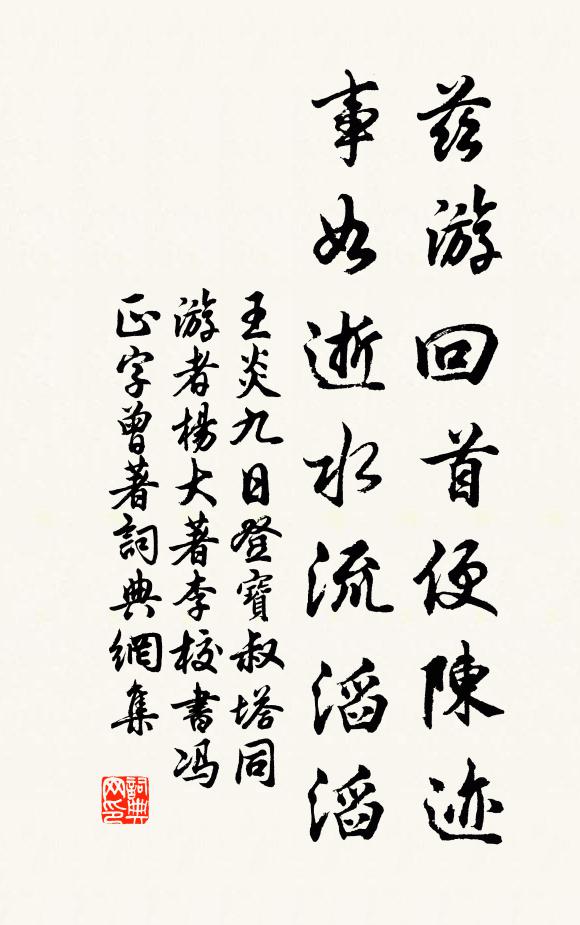 茲游回首便陳迹
事如逝水流滔滔
王炎九日登寶叔塔同
游者楊大著李校書冯
正字曾著詞典網集
詞典
网印